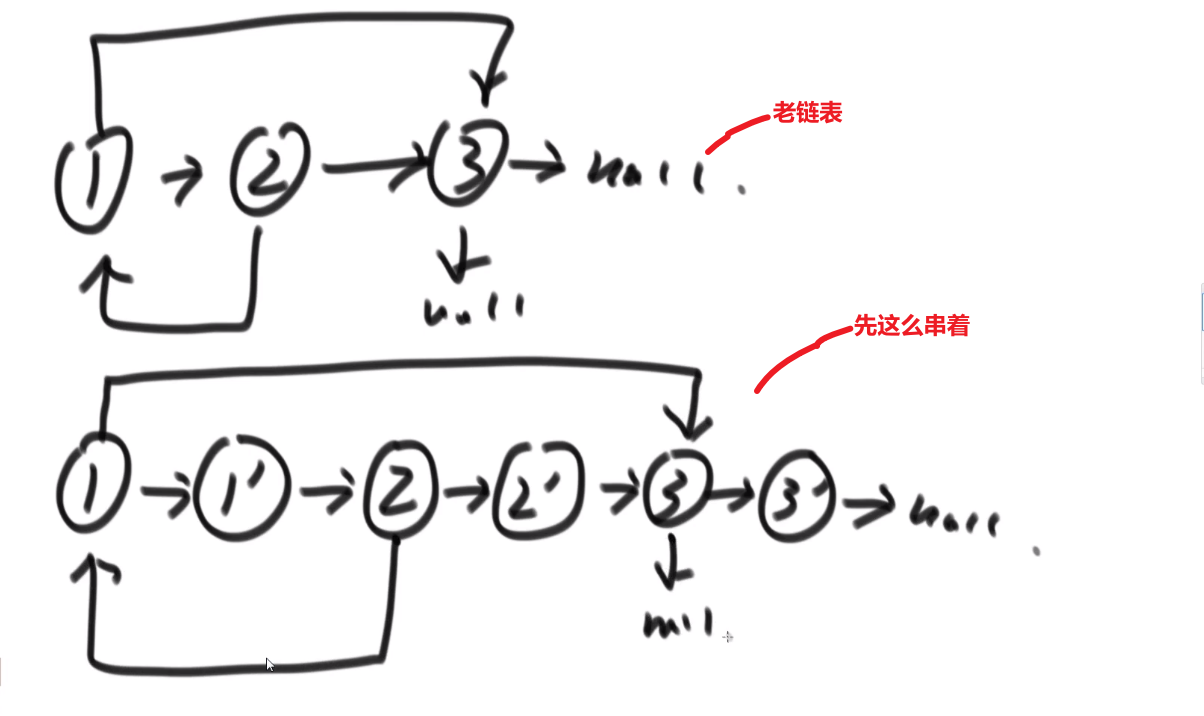 老链表
1 → 2 → 3 → null.
null
先这么串着
1 → 1' → 2 → 2' → 3 → 3' → null
null